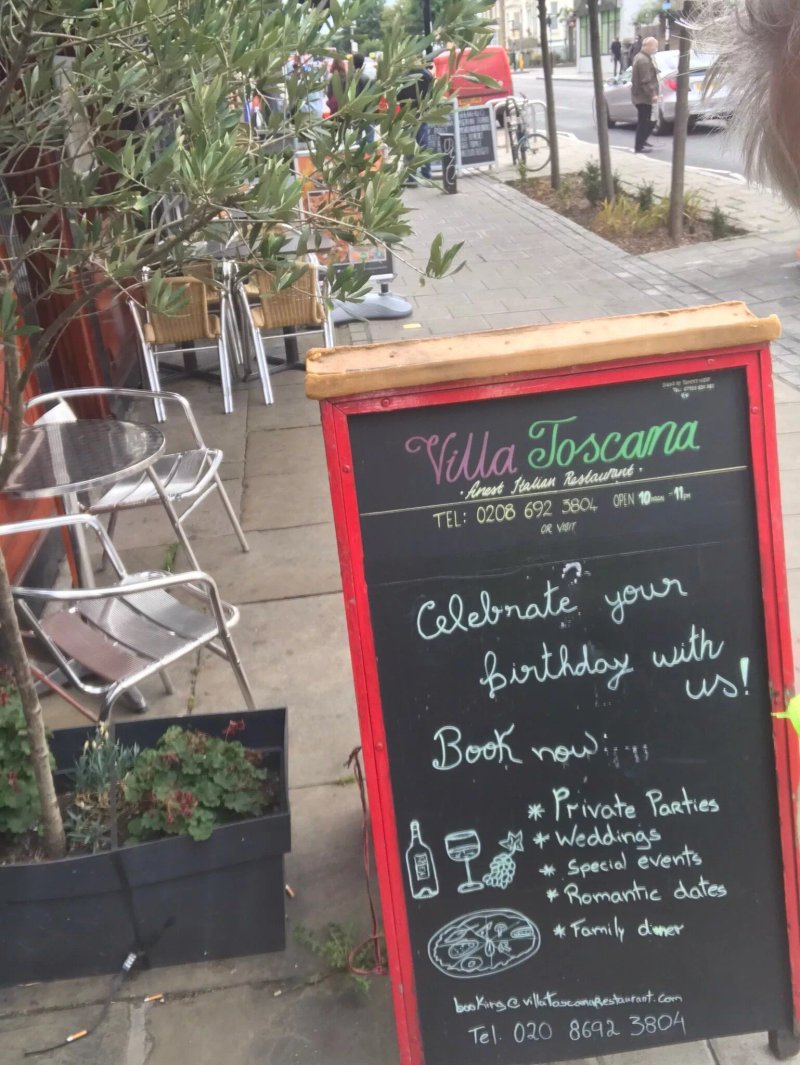 Villa Toscana
finest Italian Restaurant
TEL: 0208 692 3804 OPEN 10 - 11PM
OR VISIT
Celebrate your
birthday with
us!
Book now:
* Private Parties
* Weddings
* Special events
* Romantic dates
* Family diner
booking@villaToscanaRestaurant.com
Tel. 020 8692 3804